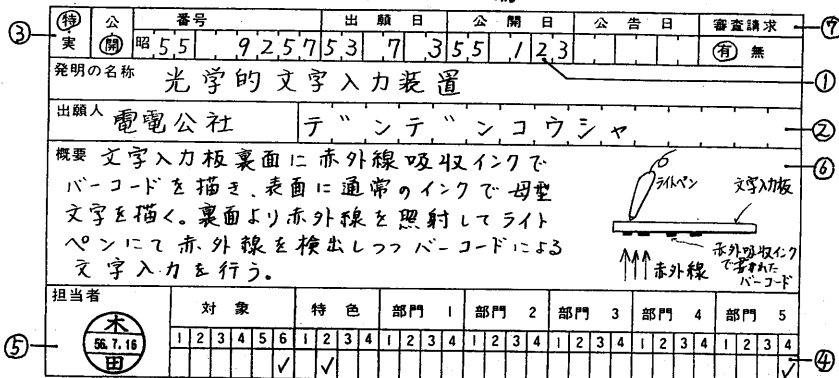 特 公 番号 出願日 公開日 公告日 審査請求 ⑦
③ 実 開 昭55 9257 53 7 3 55 1 23 有 無
①
発明の名称 光学的文字入力装置
出願人 電電公社 デンデンコウシャ ②
概要 文字入力板裏面に赤外線吸収インクで ⑥
バーコードを描き、表面に通常のインクで母型
文字を描く。裏面より赤外線を照射してライト
ペンにて赤外線を検出しつつバーコードによる
文字入力を行う。
ライトペン 文字入力板
赤外線
赤外吸収インク
で書かれた
バーコード
担当者 対象 特色 部門 1 部門 2 部門 3 部門 4 部門 5
1 2 3 4 5 6 1 2 3 4 1 2 3 4 1 2 3 4 1 2 3 4 1 2 3 4 1 2 3 4
⑤ 木 56.7.16 田 ✓ ✓ ✓ ④